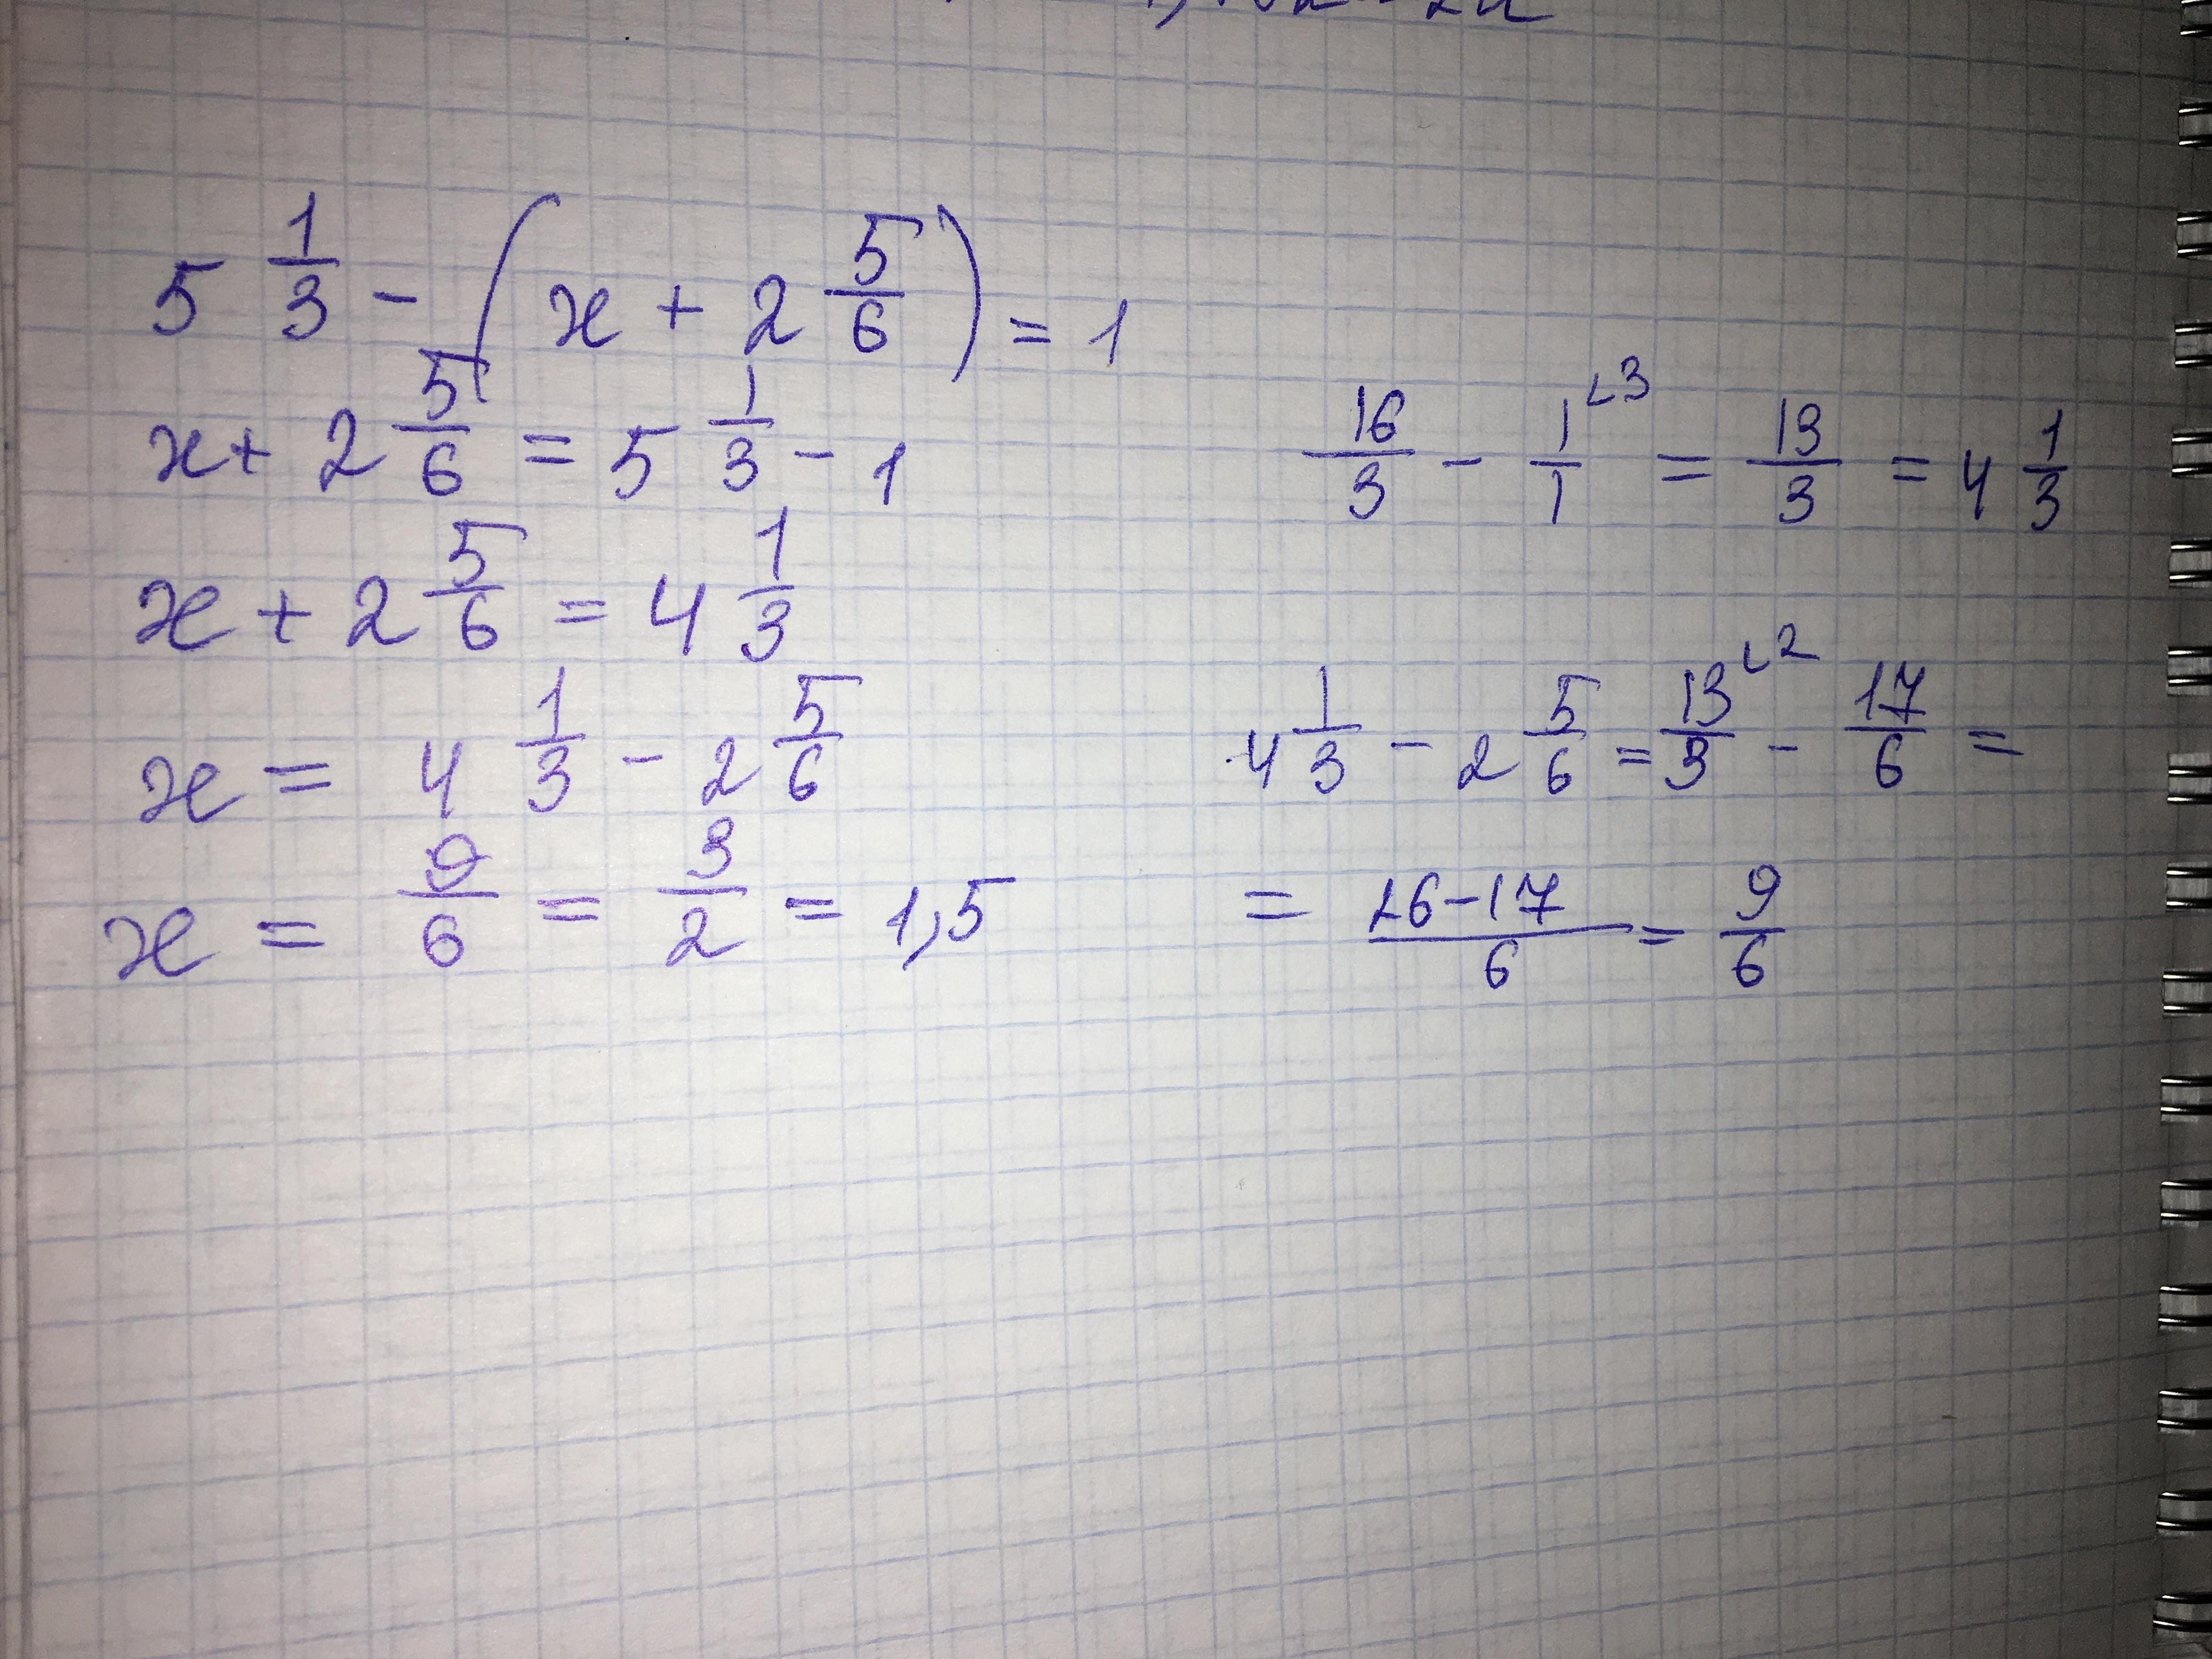 5 1/3 - (x + 2 5/6) = 1
x + 2 5/6 = 5 1/3 - 1
x + 2 5/6 = 4 1/3
x = 4 1/3 - 2 5/6
x = 9/6 = 3/2 = 1,5
16/3 - 1/1 ^(3 = 13/3 = 4 1/3
4 1/3 - 2 5/6 = 13/3 ^(2 - 17/6 =
= 26-17/6 = 9/6